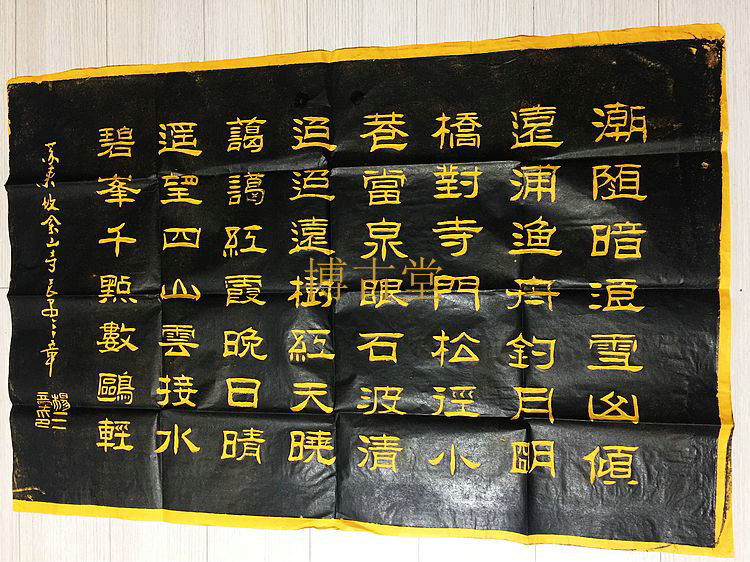 潮随暗浪雪山傾
遠浦渔舟釣月明
橋對寺門松徑小
巷當泉眼石波清
迢迢遠樹紅天曉
藹藹紅霞晚日晴
遥望四山雲接水
碧峯千點數鷗輕
苏東坡金山寺